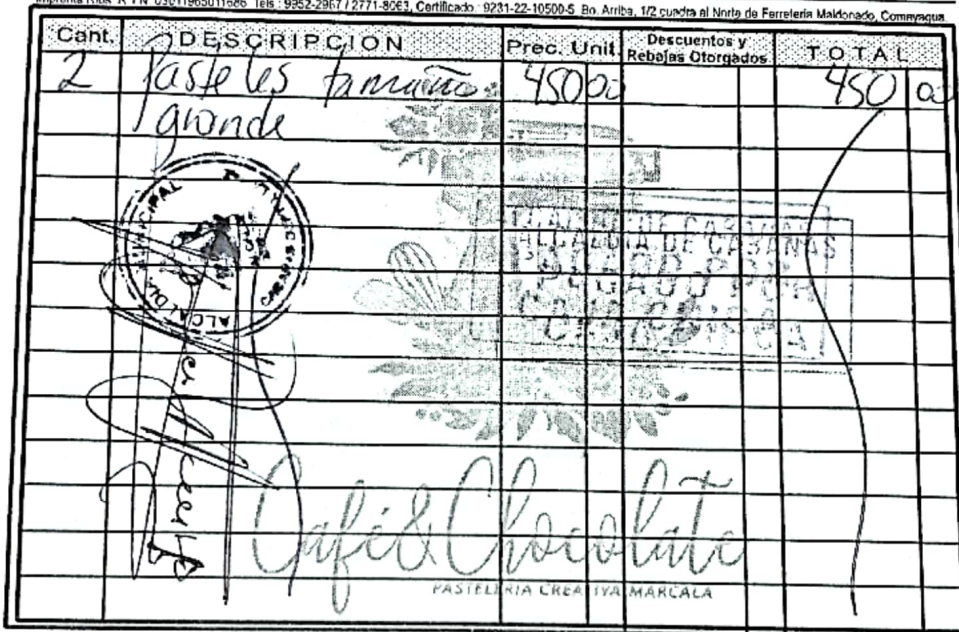 Imprenta Ríos R.T.N. 03011965011686 Tels.: 9952-2967 / 2771-8063, Certificado.: 9231-22-10500-5 Bo. Arriba, 1/2 cuadra al Norte de Ferretería Maldonado, Comayagua
Cant. DESCRIPCION Prec. Unit. Descuentos y Rebajas Otorgados TOTAL
2 Pasteles tamaño 450 00 450 00
grande
ALCALDIA MUNICIPAL
ALCALDIA DE CABAÑAS
PAGADO POR
Café & Chocolate
PASTELERIA CREATIVA MARCALA